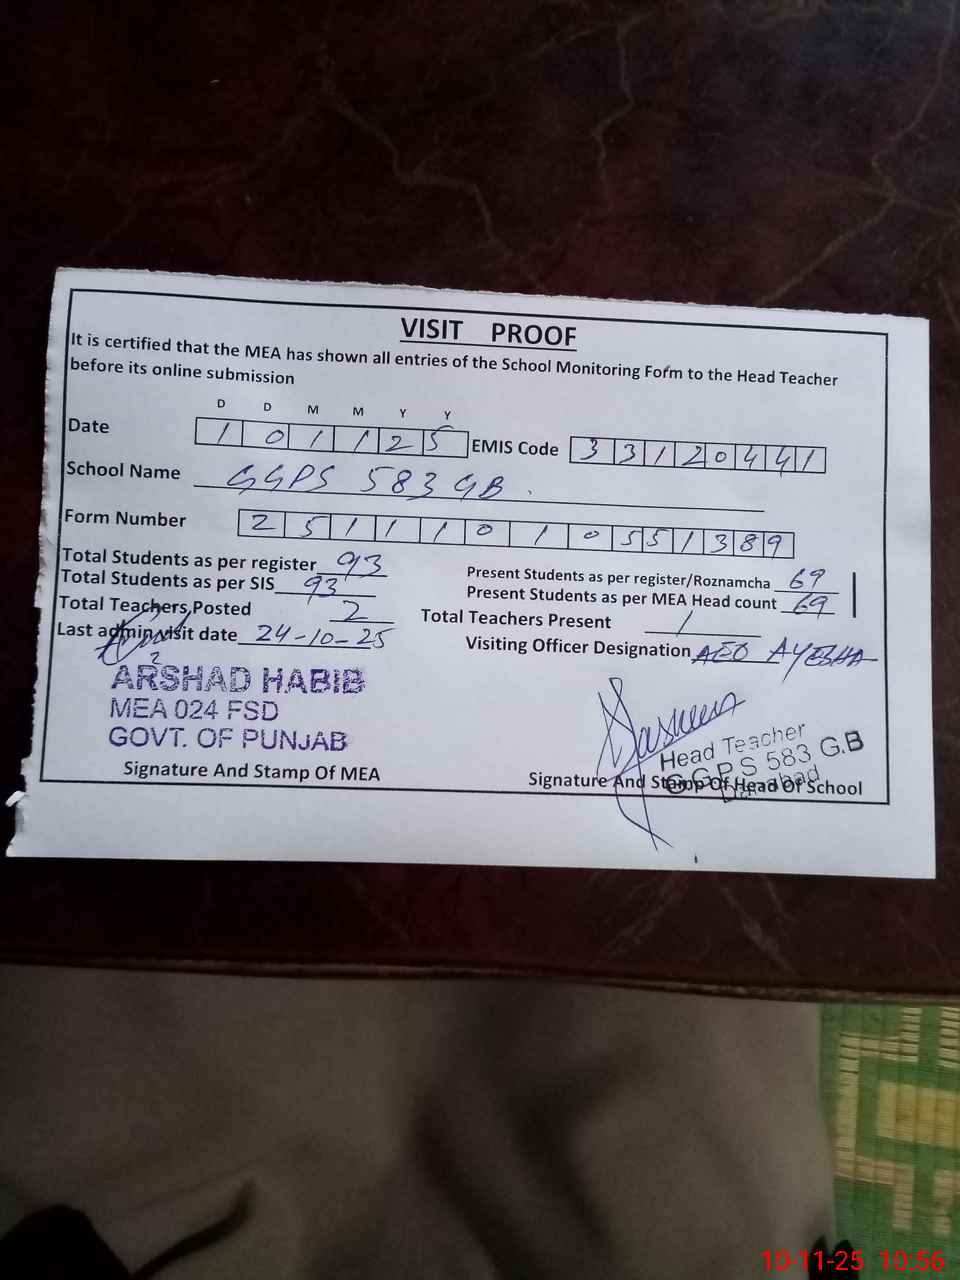 VISIT PROOF
It is certified that the MEA has shown all entries of the School Monitoring Form to the Head Teacher
before its online submission
D D M M Y Y
Date 1 0 1 1 2 5 EMIS Code 3 3 1 2 0 4 4 1
School Name GGPS 583 GB.
Form Number 2 5 1 1 1 0 1 0 5 5 1 3 8 9
Total Students as per register 93
Present Students as per register/Roznamcha 69
Total Students as per SIS 93
Present Students as per MEA Head count 69
Total Teachers Posted 2
Total Teachers Present 1
Last admin visit date 24-10-25
Visiting Officer Designation AEO AYESHA
ARSHAD HABIB
MEA 024 FSD
GOVT. OF PUNJAB
Signature And Stamp Of MEA
Head Teacher
G.G.P.S 583 G.B
Signature And Stamp Of Head Of School
10-11-25 10:56